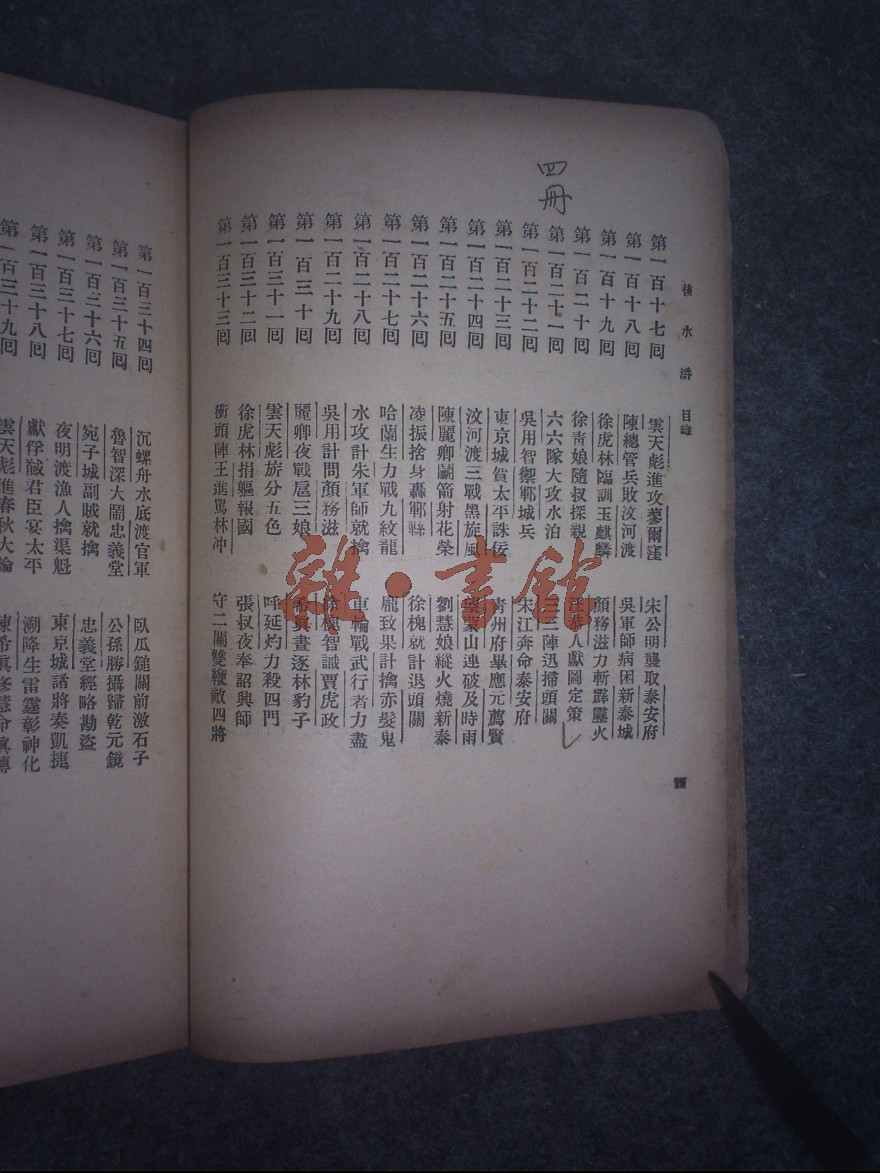 四冊
水滸 目錄
第一百十七囘 雲天彪進攻蓼爾窪 宋公明襲取泰安府
第一百十八囘 陳總管兵敗汶河渡 吳軍師病困新泰城
第一百十九囘 徐虎林臨訓玉麒麟 顏務滋力斬霹靂火
第一百二十囘 徐青娘隨叔探親 汪恭人獻圖定策
第一百二十一囘 六六隊大攻水泊 三三陣迅掃頭關
第一百二十二囘 吳用智禦鄆城兵 宋江奔命泰安府
第一百二十三囘 東京城賀太平誅佞 青州府畢應元薦賢
第一百二十四囘 汶河渡三戰黑旋風 望蒙山連破及時雨
第一百二十五囘 陳麗卿鬭箭射花榮 劉慧娘縱火燒新泰
第一百二十六囘 凌振捨身轟鄆縣 徐槐就計退頭關
第一百二十七囘 哈蘭生力戰九紋龍 龐致果計擒赤髮鬼
第一百二十八囘 水攻計朱軍師就擒 車輪戰武行者力盡
第一百二十九囘 吳用計間顏務滋 徐槐智識賈虎政
第一百三十囘 麗卿夜戰扈三娘 希眞晝逐林豹子
第一百三十一囘 雲天彪旂分五色 呼延灼力殺四門
第一百三十二囘 徐虎林捐軀報國 張叔夜奉詔興師
第一百三十三囘 衝頭陣王進罵林冲 守二關雙鞭敵四將
第一百三十四囘 沉螺舟水底渡官軍 臥瓜鎚關前激石子
第一百三十五囘 魯智深大鬧忠義堂 公孫勝攝歸乾元鏡
第一百三十六囘 宛子城副賊就擒 忠義堂經略勘盜
第一百三十七囘 夜明渡漁人擒渠魁 東京城諸將奏凱捷
第一百三十八囘 獻俘馘君臣宴太平 溯降生雷霆彰神化
第一百三十九囘 雲天彪進春秋大論 陳希眞修慧命眞傳
雜·書館